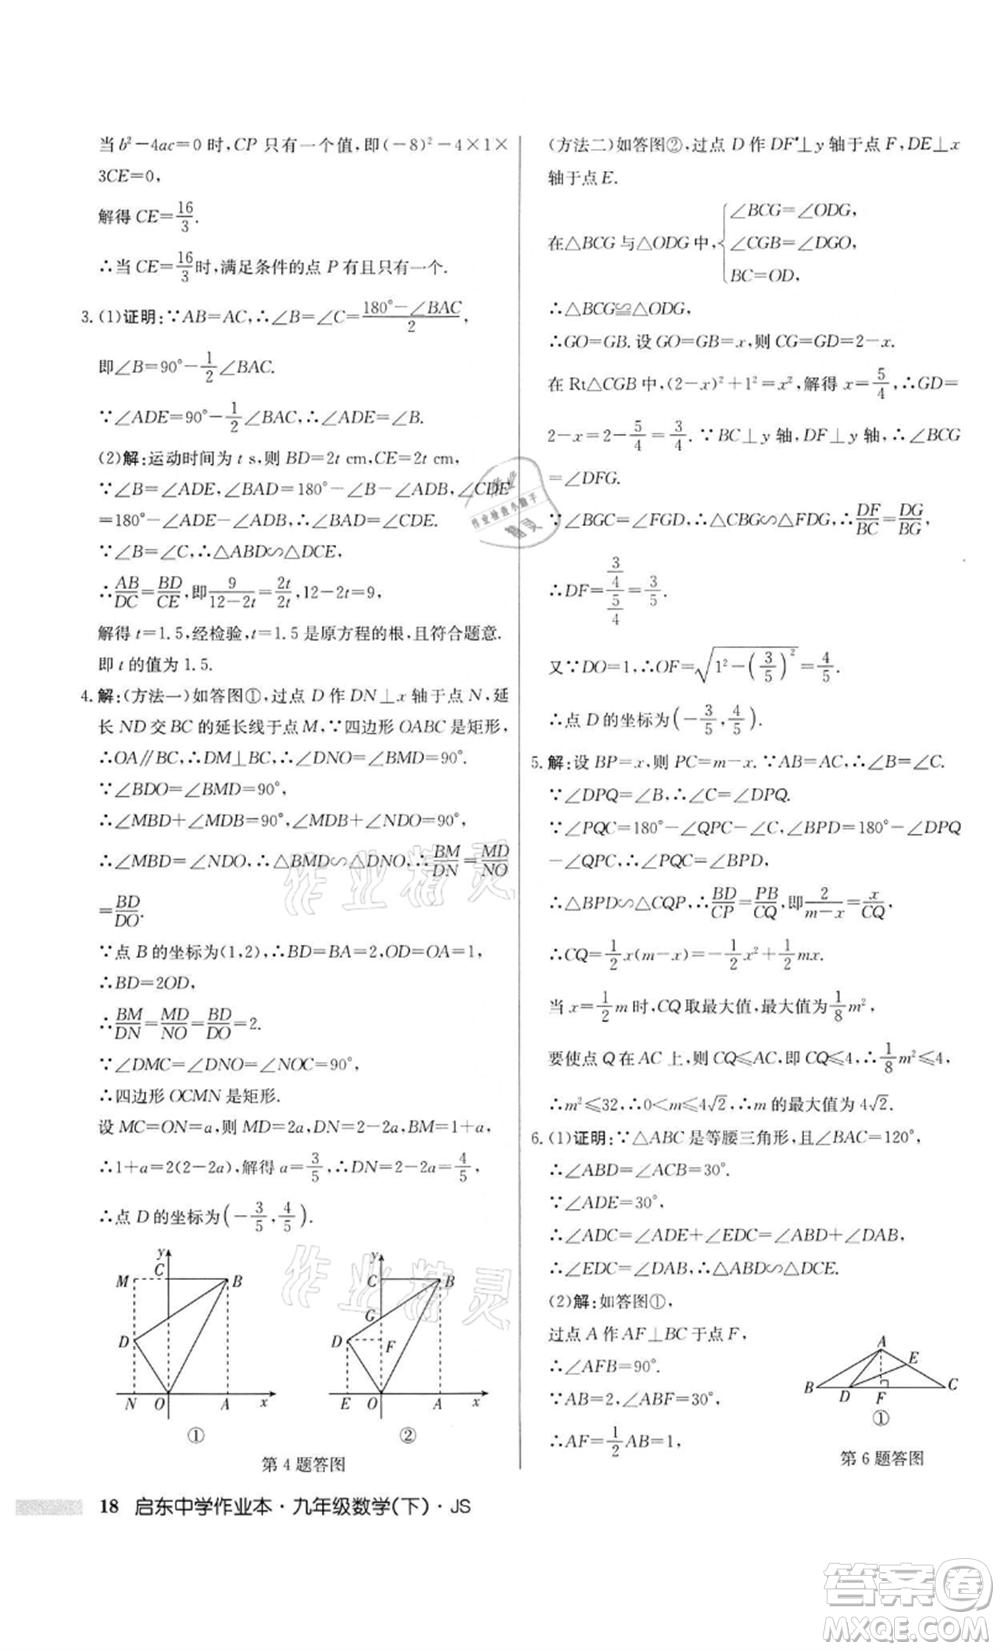 当 b²-4ac=0 时, CP 只有一个值,即(-8)²-4×1×
3CE=0,
解得 CE=16/3.
∴当 CE=16/3时,满足条件的点 P 有且只有一个.
3. (1)证明:∵AB=AC,∴∠B=∠C=(180°-∠BAC)/2,
即∠B=90°-1/2∠BAC.
∵∠ADE=90°-1/2∠BAC,∴∠B=∠ADE.
(2)解:运动时间为 t s,则 BD=2t cm,CE=2t cm,
∵∠B=∠ADE,∠BAD=180°-∠B-∠ADB,∠CDE
=180°-∠ADE-∠ADB,∴∠BAD=∠CDE.
∵∠B=∠C,∴△ABD∽△DCE,
∴AB/DC=BD/CE,即9/(12-2t)=2t/2t,∴12-2t=9,
解得 t=1.5,经检验,t=1.5 是原方程的根,且符合题意.
即 t 的值为 1.5.
4. 解:(方法一)如答图①,过点 D 作 DN⊥x 轴于点 N,延
长 ND 交 BC 的延长线于点 M,∵四边形 OABC 是矩形,
∴OA∥BC,∴DM⊥BC,∴∠DNO=∠BMD=90°.
∵∠BDO=∠BMD=90°,
∴∠MBD+∠MDB=90°,∠MDB+∠NDO=90°,
∴∠MBD=∠NDO,∴△BMD∽△DNO,∴BM/DN=MD/NO
=BD/DO.
∵点 B 的坐标为(1,2),∴BD=BA=2,OD=OA=1,
∴BD=2OD,
∴BM/DN=MD/NO=BD/DO=2.
∵∠DMC=∠DNO=∠NOC=90°,
∴四边形 OCMN 是矩形.
设 MC=ON=a,则 MD=2a,DN=2-2a,BM=1+a,
∴1+a=2(2-2a),解得 a=3/5,∴DN=2-2a=4/5,
∴点 D 的坐标为(-3/5,4/5).
y
M C B
D
N O A x
①
y
C B
G
D F
E O A x
②
第 4 题答图
(方法二)如答图②,过点 D 作 DF⊥y 轴于点 F,DE⊥x
轴于点 E.
在△BCG 与△ODG 中,{∠BCG=∠ODG,
∠CGB=∠DGO,
BC=OD,
∴△BCG≌△ODG,
∴GO=GB. 设 GO=GB=x,则 CG=GD=2-x.
在 Rt△CGB 中,(2-x)²+1²=x²,解得 x=5/4,∴GD=
2-x=2-5/4=3/4. ∵BC⊥y 轴,DF⊥y 轴,∴∠BCG
=∠DFG.
∵∠BGC=∠FGD,∴△CBG∽△FDG,∴DF/BC=DG/BG,
∴DF=(3/4)/(5/4)=3/5.
又∵DO=1,∴OF=√(1²-(3/5)²)=4/5,
∴点 D 的坐标为(-3/5,4/5).
5. 解:设 BP=x,则 PC=m-x. ∵AB=AC,∴∠B=∠C.
∵∠DPQ=∠B,∴∠C=∠DPQ.
∵∠PQC=180°-∠QPC-∠C,∠BPD=180°-∠DPQ
-∠QPC,∴∠PQC=∠BPD,
∴△BPD∽△CQP,∴BD/CP=PB/CQ,即2/(m-x)=x/CQ,
∴CQ=1/2x(m-x)=-1/2x²+1/2mx.
当 x=1/2m 时,CQ 取最大值,最大值为1/8m²,
要使点 Q 在 AC 上,则 CQ≤AC,即 CQ≤4,∴1/8m²≤4,
∴m²≤32,∴0<m≤4√2,∴m 的最大值为 4√2.
6. (1)证明:∵△ABC 是等腰三角形,且∠BAC=120°,
∴∠ABD=∠ACB=30°.
∵∠ADE=30°,
∴∠ABD=∠ADE=30°.
∵∠ADC=∠ADE+∠EDC=∠ABD+∠DAB,
∴∠EDC=∠DAB,∴△ABD∽△DCE.
(2)解:如答图①,
过点 A 作 AF⊥BC 于点 F,
∴∠AFB=90°.
∵AB=2,∠ABF=30°,
∴AF=1/2AB=1,
A
E
B D F C
①
第 6 题答图
18 启东中学作业本·九年级数学(下)·JS
作业精灵
作业精灵
作业检查小助手
答案卷
MXQE.COM